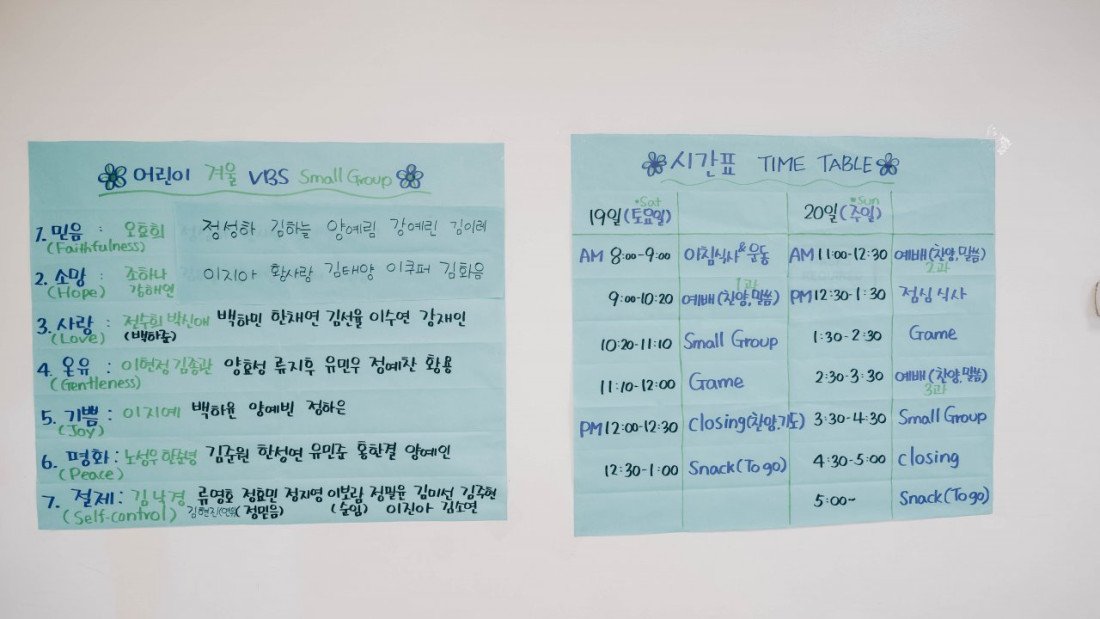 어린이 겨울 VBS Small Group
1. 믿음 : 오효희 정성하 김하늘 양예림 강예린 김이레
(Faithfulness)
2. 소망 : 조하나 이지아 황사랑 김태양 이쿠퍼 김화음
(Hope) 김해인
3. 사랑 : 전수희 박신애 백하민 한채연 김선율 이수연 강재인
(Love) (백하준)
4. 온유 : 이현정 김종관 양효성 류지후 유민우 정예찬 황용
(Gentleness)
5. 기쁨 : 이지예 백하윤 양예빈 정하은
(Joy)
6. 평화 : 노성우 한준영 김준원 한성연 유민준 홍한결 양예인
(Peace)
7. 절제 : 김낙경 류영호 정효민 정지영 이보람 정필윤 김미선 김주현
(Self-control) (정믿음) (순임) 이진아 김소연
시간표 TIME TABLE
•Sat •Sun
19일(토요일) 20일(주일)
AM 8:00-9:00 아침식사 & 운동 AM 11:00-12:30 예배(찬양,말씀)
1과 2과
9:00-10:20 예배(찬양,말씀) PM 12:30-1:30 점심 식사
10:20-11:10 Small Group 1:30-2:30 Game
11:10-12:00 Game 2:30-3:30 예배(찬양,말씀)
3과
PM 12:00-12:30 closing(찬양,기도) 3:30-4:30 Small Group
12:30-1:00 Snack(To go) 4:30-5:00 closing
5:00~ Snack(To go)